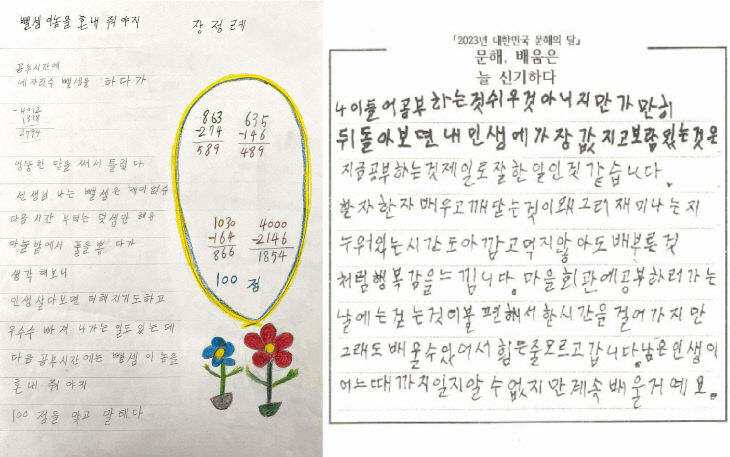 뺄셈 이놈을 혼내 줘야지
장정례
공부시간에
네자리수 뺄셈을 하다가
-4012
1318
2794
엉뚱한 답을 써서 틀렸다
선생님 나는 뺄셈은 재미없슈
다음 시간 부터는 덧셈만 해유
마늘밭에서 돌을 뽑다가
생각해보니
인생 살다보면 더해지기도하고
우수수 빠져 나가는 일도 있는데
다음 공부시간에는 뺄셈 이놈을
혼내 줘야지
100점을 맞고 말테다
863
-274
589
635
-146
489
1030
-164
866
4000
-2146
1854
100점
「2023년 대한민국 문해의 달」
문해, 배움은
늘 신기하다
나이들어공부하는것쉬우것아니지만가만히
뒤돌아보면내인생에가장값지고보람있는것은
지금공부하는것제일로잘한일인것같습니다.
한자한자배우고깨닫는것이왜그리재미나는지
누워있는시간도아깝고먹지않아도배부른것
처럼행복감을느낍니다. 마을회관에공부하러가는
날에는걷는것이불편해서한시간을걸어가지만
그래도배울수있어서힘든줄모르고갑니다. 남은인생이
어느때까지일지알수없지만계속배울거예요.